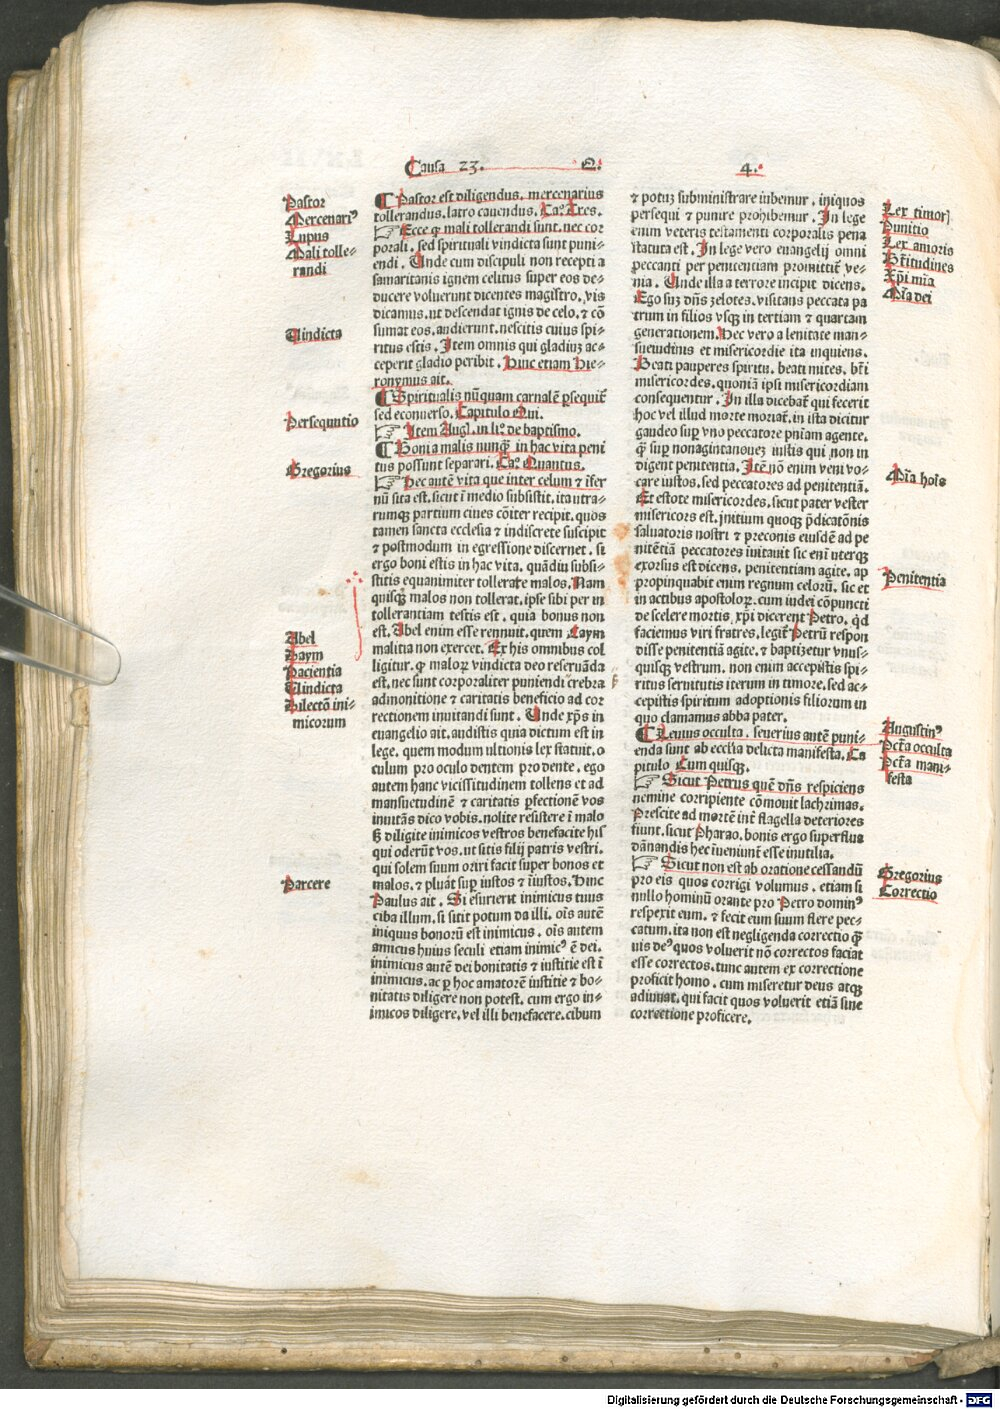 Causa 23. Q. 4.
Pastor
Mercenariꝰ
Lupus
Mali tolle-
randi
Vindicta
Persequutio
Gregorius
Abel
Caym
Paciencia
Vindicta
Dilectō ini-
micorum
Parcere
¶ Pastor est diligendus. mercenarius
tollerandus. latro cauendus. Caꝰ. Tres.
☞ Ecce ꝙ mali tollerandi sunt. nec cor
porali. sed spirituali vindicta sunt puni-
endi. Unde cum discipuli non recepti a
samaritanis ignem celitus super eos de-
ducere voluerunt dicentes magistro. vis
dicamus. ut descendat ignis de celo. ⁊ cō
sumat eos. audierunt. nescitis cuius spi-
ritus estis. Item omnis qui gladiuꝫ ac-
ceperit gladio peribit. Hinc etiam Hie-
ronymus ait.
¶ Spiritualis nūquam carnalē ꝑsequit̄
sed econuerso. Capitulo Qui.
☞ Item Augꝰ. in liꝰ. de baptismo.
¶ Boni a malis nunꝙ̄ in hac vita peni
tus possunt separari. Caꝰ. Quantus.
☞ Hec autē vita que inter celum ⁊ īfer
nū sita est. sicut ī medio subsistit. ita utra-
rumqꝫ partium ciues cōiter recipit. quos
tamen sancta ecclesia ⁊ indiscrete suscipit
⁊ postmodum in egressione discernet. si
ergo boni estis in hac vita. quādiu subsi-
stitis equanimiter tollerate malos. Nam
quisqꝫ malos non tollerat. ipse sibi per in
tollerantiam testis est. quia bonus non
est. Abel enim esse rennuit. quem Caym
malitia non exercet. Ex his omnibus col
ligitur. ꝙ maloꝝ vindicta deo reseruāda
est. nec sunt corporaliter puniendi crebra
admonitione ⁊ caritatis beneficio ad cor
rectionem inuitandi sunt. Unde xp̄s in
euangelio ait. audistis quia dictum est in
lege. quem modum ultionis lex statuit. o
culum pro oculo dentem pro dente. ego
autem hanc vicissitudinem tollens et ad
mansuetudinē ⁊ caritatis ꝑfectionē vos
inuitās dico vobis. nolite resistere ī malo
ꝯ̄ diligite inimicos vestros benefacite his
qui oderūt vos. ut sitis filij patris vestri.
qui solem suum oriri facit super bonos et
malos. ⁊ pluāt suꝑ iustos ⁊ īiustos. Hinc
Paulus ait. Si esurierit inimicus tuus
ciba illum. si sitit potum da illi. oīs autē
iniquus bonorū est inimicus. oīs autem
amicus huius seculi etiam inimicꝰ ē dei.
inimicus autē dei bonitatis ⁊ iustitie est ī
inimicus. ac ꝑ hoc amatorē iustitie ⁊ bo-
nitatis diligere non potest. cum ergo in-
imicos diligere. vel illi benefacere. cibum
⁊ potuꝫ subministrare iubemur. iniquos
persequi ⁊ punire prohibemur. In lege
enim veteris testamenti corporalis pena
statuta est. In lege vero euangelij omni
peccanti per penitenciam promittit̄ ve-
nia. Unde illa a terrore incipit dicens.
Ego suꝫ dn̄s zelotes. visitans peccata pa
trum in filios vsqꝫ in tertiam ⁊ quartam
generationem. Hec vero a lenitate man-
suetudinis et misericordie ita inquiens.
Beati pauperes spiritu. beati mites. bt̄i
misericordes. quoniā ipsi misericordiam
consequentur. In illa dicebat̄ qui fecerit
hoc vel illud morte moriat̄. in ista dicitur
gaudeo suꝑ vno peccatore pn̄iam agente.
ꝙ̄ suꝑ nonagintanoueꝫ iustis qui non in
digent penitentia. Itē nō enim veni vo-
care iustos. sed peccatores ad penitentiā.
Et estote misericordes. sicut pater vester
misericors est. jnitium quoqꝫ p̄dicatōnis
saluatoris nostri ⁊ preconis eiusdē ad pe
nitētiā peccatores inuitauit sic eni uterqꝫ
exorsus est dicens. penitentiam agite. ap
propinquabit enim regnum celorū. sic et
in actibus apostoloꝝ. cum iudei cōpuncti
de scelere mortis xp̄i dicerent Petro. qͥd
faciemus viri fratres. legit̄ Petrū respon
disse penitentiā agite. ⁊ baptizetur vnus-
quisqꝫ vestrum. non enim accepistis spi-
ritus seruitutis iterum in timore. sed ac-
cepistis spiritum adoptionis filiorum in
quo clamamus abba pater.
¶ Leuius occulta. seuerius autē puni-
enda sunt ab eccl̄ia delicta manifesta. Ca
pitulo Cum quisqꝫ.
☞ Sicut Petrus quē dn̄s respiciens
nemine corripiente cōmouit lachrimas.
Prescite ad mortē int̄ flagella deteriores
fiunt. sicut Pharao. bonis ergo superflua
dānandis hec īueniunt̄ esse inutilia.
☞ Sicut non est ab oratione cessandū
pro eis quos corrigi volumus. etiam si
nullo hominū orante pro Petro dominꝰ
respexit eum. ⁊ fecit eum suum flere pec-
catum. ita non est negligenda correctio ꝙ̄
uis deꝰ quos voluerit nō correctos faciat
esse correctos. tunc autem ex correctione
proficit homo. cum miseretur deus atqꝫ
adiuuat. qui facit quos voluerit etiā sine
correctione proficere.
Lex timorꝭ
Punitio
Lex amoris
Bt̄itudines
Xp̄i mīa
Mīa dei
Mīa hoīs
Penitentia
Augustinꝰ
Pct̄a occulta
Pct̄a mani-
festa
Gregorius
Correctio
Digitalisierung gefördert durch die Deutsche Forschungsgemeinschaft - DFG